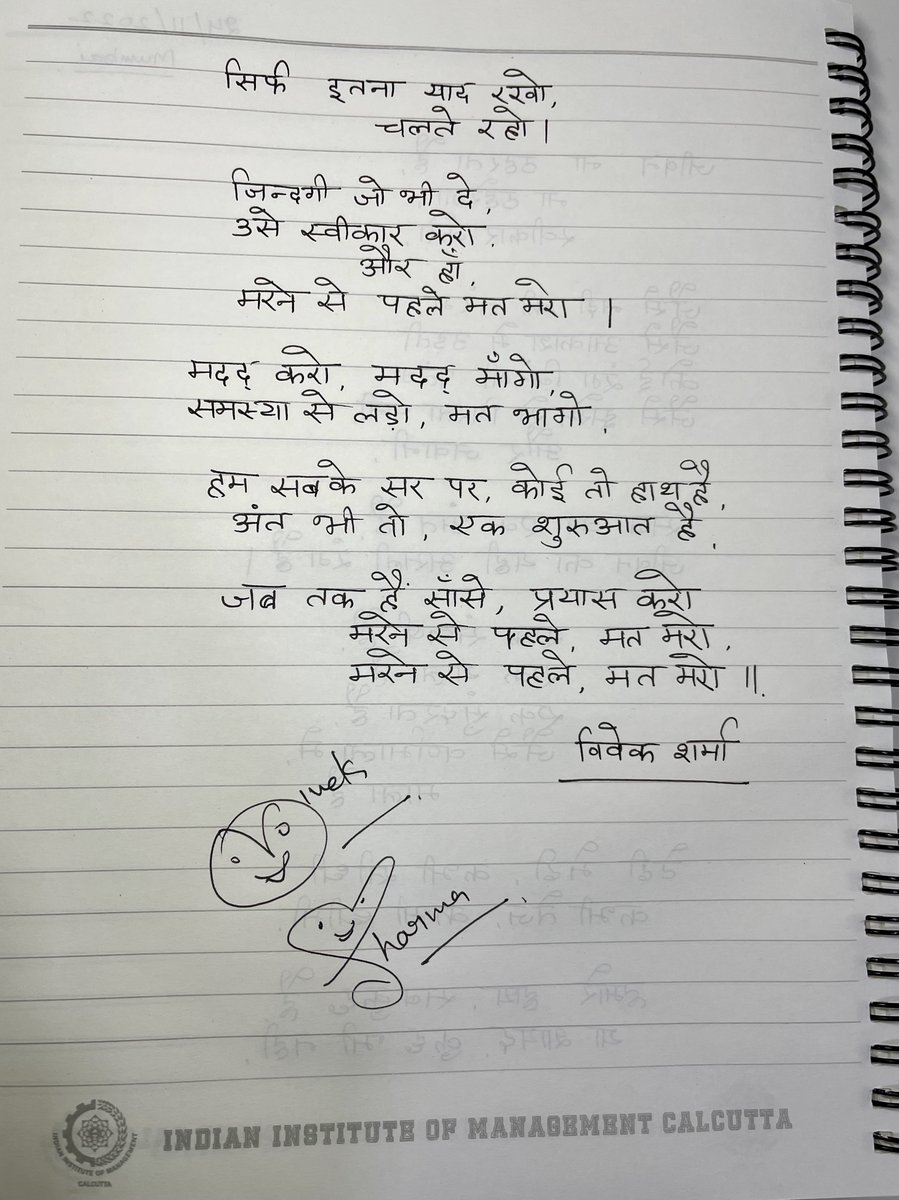 सिर्फ इतना याद रखो,
चलते रहो।
जिन्दगी जो भी दे,
उसे स्वीकार करो,
और हाँ,
मरने से पहले मत मरो ।
मदद करो, मदद माँगो,
समस्या से लड़ो, मत भागो,
हम सबके सर पर, कोई तो हाथ है,
अंत भी तो, एक शुरुआत है,
जब तक हैं साँसे, प्रयास करो
मरने से पहले, मत मरो,
मरने से पहले, मत मरो ॥
विवेक शर्मा
Vivek
Sharma
INDIAN INSTITUTE OF MANAGEMENT CALCUTTA
INDIAN INSTITUTE OF MANAGEMENT
CALCUTTA